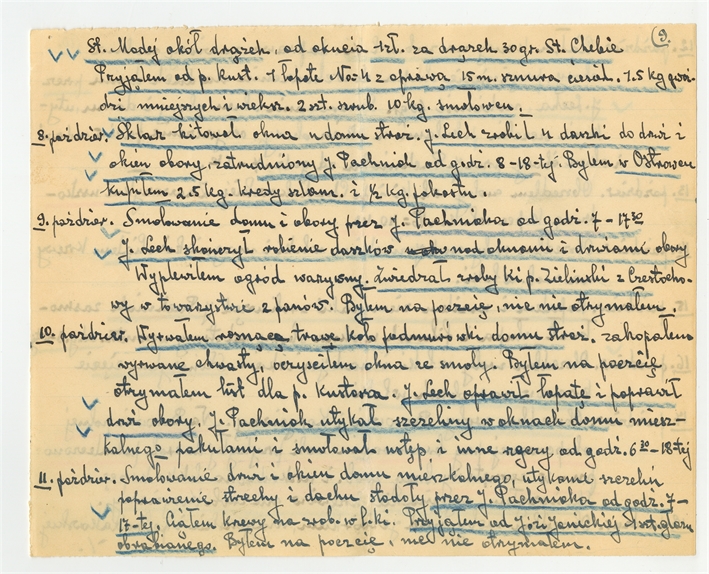 9.
St. Modej okół drążek, od okucia 1zł. za drążek 30 gr. St. Chebie
Pryjąłem od p. Kurt. 1 łopatę No-4 z oprawą 15 m. sznura 1.5 kg gwoź-
dzi mniejszych i wieksz. 2 szt. szrub. 10 kg. smolowcu.
8. paździer. Szklaż kitował okna u domu stroż. J. Lech zrobił 4 daszki do drzwi i
okien obory, zatrudniony J. Pachniok od godź. 8-18-tej. Byłem w Ostrowcu
kupiłem 2.5 kg. kredy szlam. i ½ kg. pokostu.
9. paździer. Smołowanie domu i obory przez J. Pachnioka od godź. 7-17 30
J. Lech skończył robienie daszków nad oknami i drzwiami obory
Wyplewiłem ogród warzywny. Zwiedzał p. Zieliński z Czestocho-
wy w towarzystwie 2 panów. Byłem na poczcię, nic nie otrzymałem.
10. paździer. Wyrwałem trawę koło podmurówki domu stroż. zakopałem
wyrwane chwasty, oczyściłem okna ze smoły. Byłem na poczcię
otrzymałem list dla p. Kurtosa. J. Lech oprawił łopatę i poprawił
drzwi obory. J. Pachniok utykał szczeliny w oknach domu miesz-
kalnego pakułami i smołował ustęp i inne od godź. 6 30 - 18-tej
11. paździer. Smołowanie drzwi i okien domu mieszkalnego, utykanie szczelin
poprawienie strzechy i dachu stodoły przez J. Pachnioka od godz. 7-
17-tej. Ciąłem krzewy na Przyjąłem od Józi Janickiej 1 szt. głazu
obrabianego. Byłem na poczcię, nic nie otrzymałem.